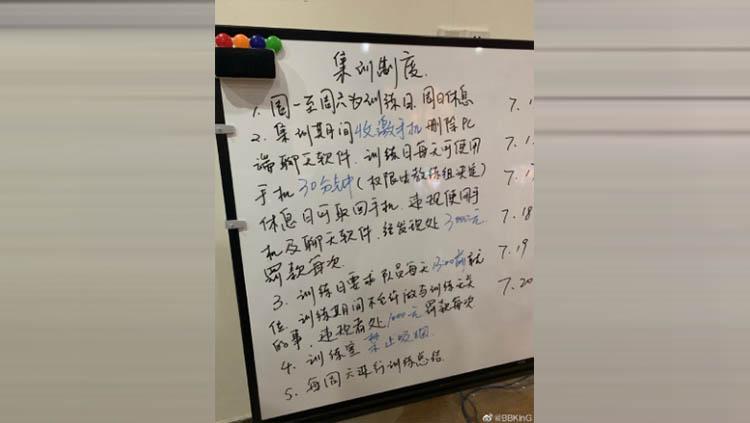 集训制度.
1. 周一至周六为训练日.周日休息
2. 集训期间收缴手机 删除PC
端聊天软件. 训练日每天可使用
手机30分钟(权限由教练组决定)
休息日可取回手机. 违规使用手
机及聊天软件. 经发现处3000元
罚款每次
3. 训练日要求队员每天13:00前就
位. 训练期间不允许做与训练无关
的事. 违规者处1000元罚款每次
4. 训练室禁止吸烟.
5. 每周六进行训练总结.
7.1
7.1
7.1
7.18
7.19
7.20
@BBKinG